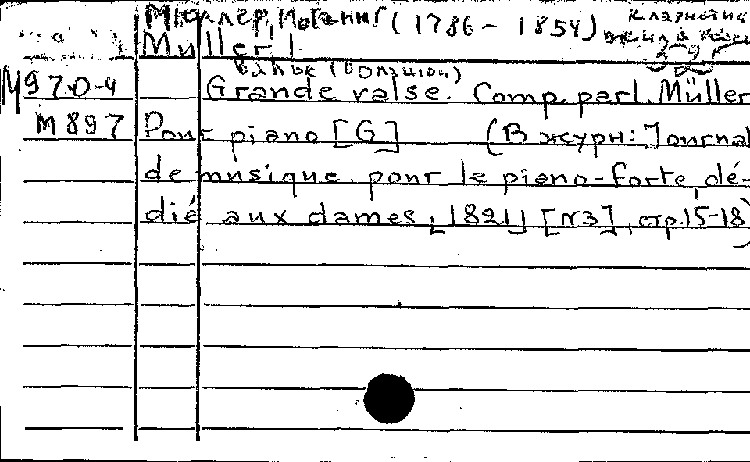 Мюллер, Иоганн (1786-1854)
Müller I.
Вальс (большой)
М970-4 Grande valse. Comp. par I. Müller
М897 Pour piano [G] (В журн: Journal
de musique pour le piano-forte, dé-
dié aux dames, [1821] [N3], стр. 15-18)